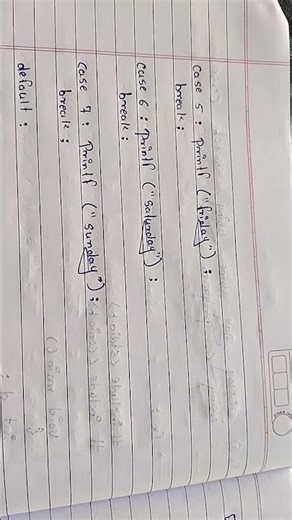 case 5 : printf ("friday") ;
break ;
case 6 : printf ("saturday") ;
break ;
case 7 : printf ("sunday") ;
break ;
default :